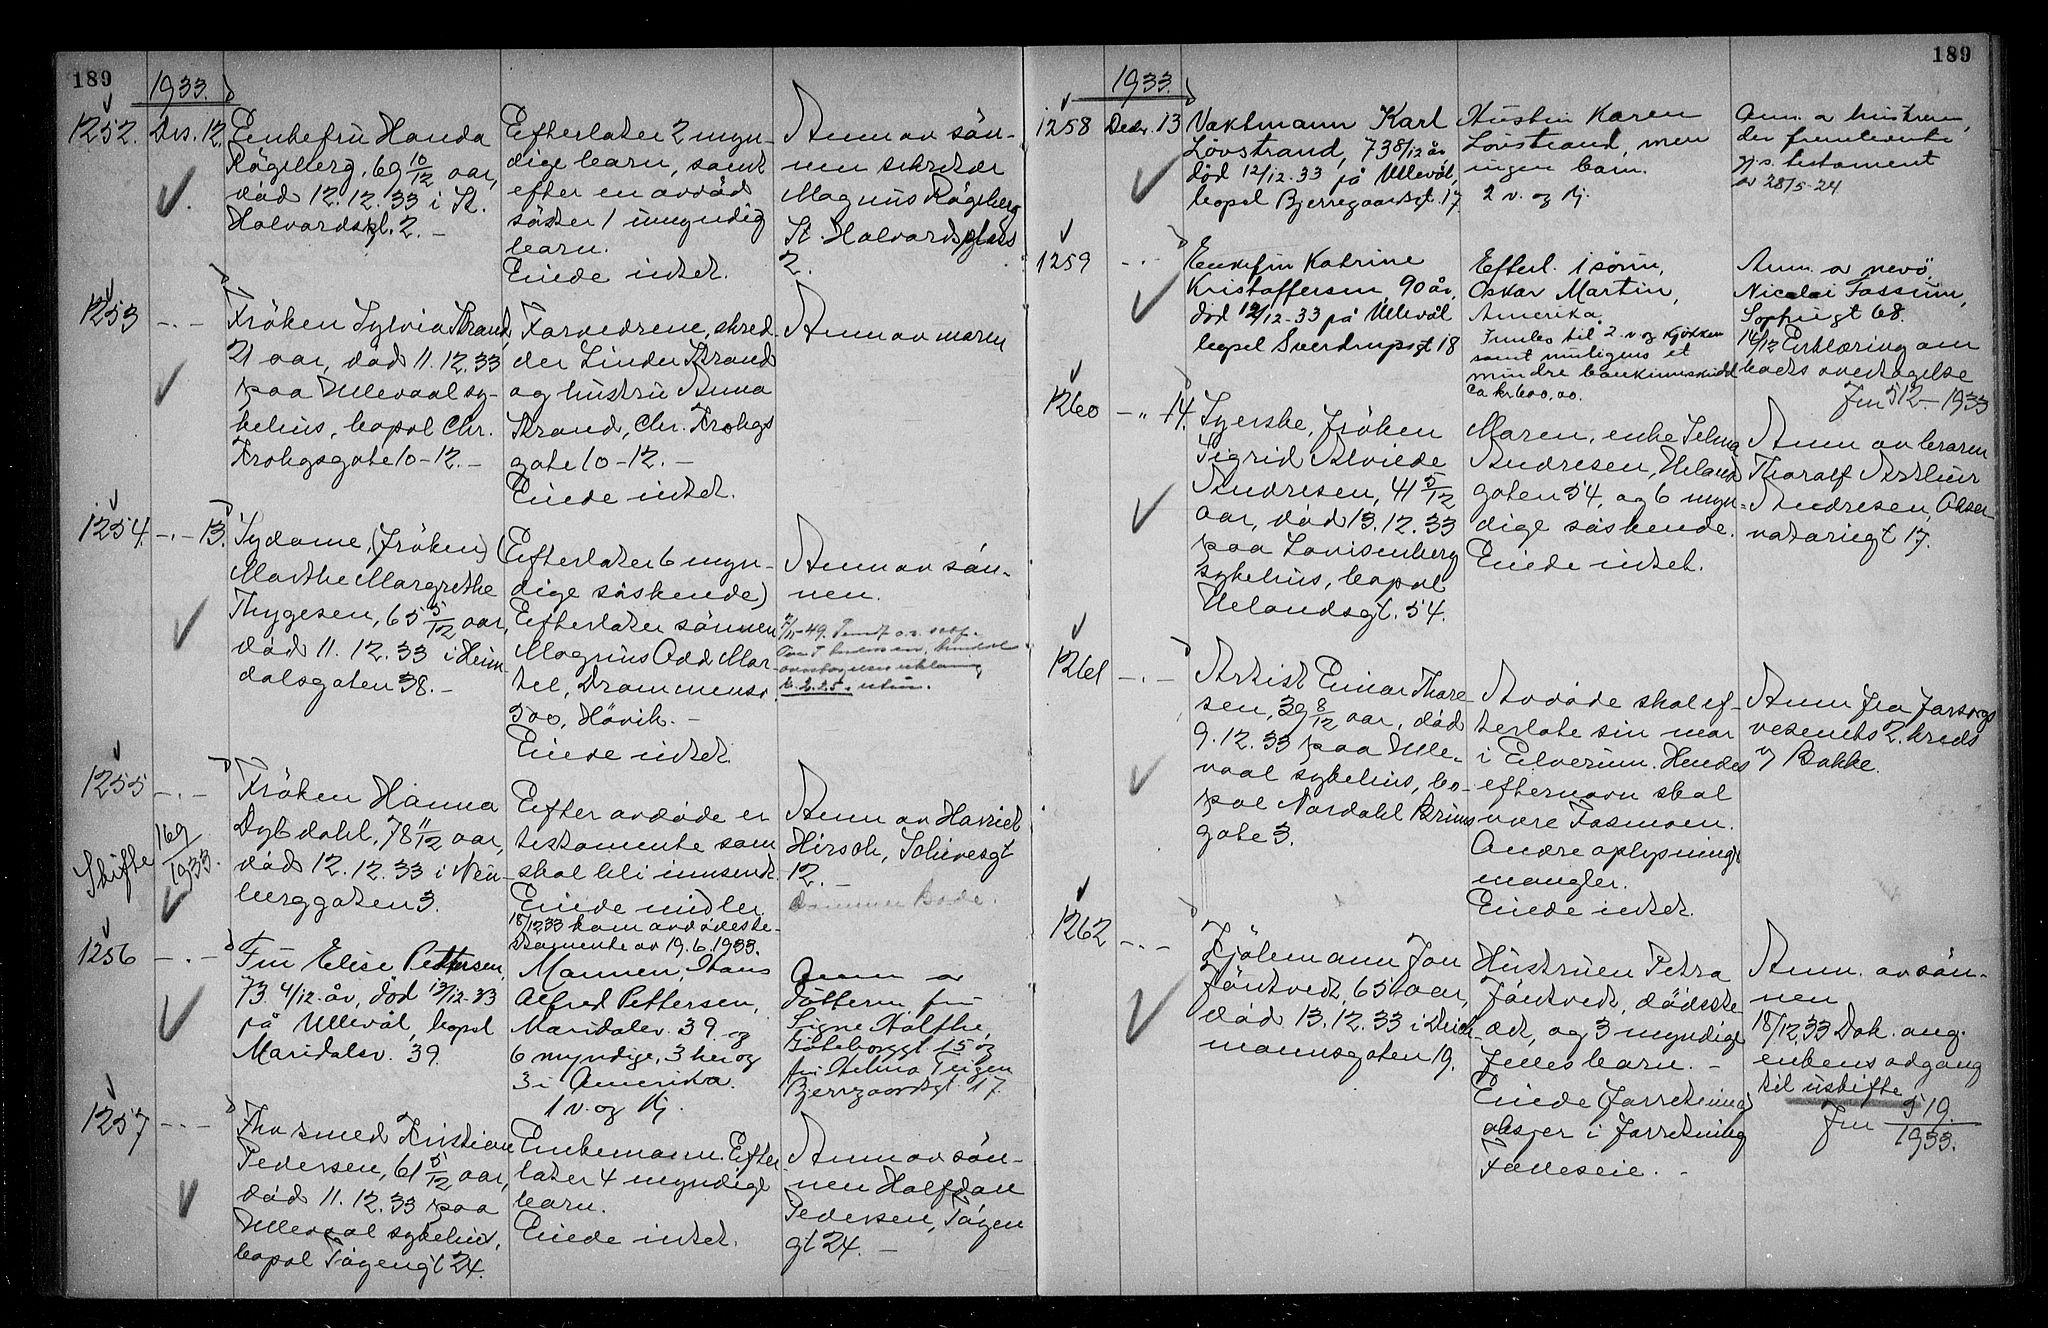 189
1933.
1252. Des. 12.
Enkefru Handa
Rågeberg, 69 10/12 aar,
död 12.12.33 i St.
Halvardspl. 2. –
Efterlater 2 myn-
dige barn, samt
efter en avdöd
söster 1 umyndig
barn.
Eiede intet.
Anm av sön-
nen sekretær
Magnus Rågeberg
St. Halvardsplass
2.
1253 – . –
Fröken Sylvia Strand,
21 aar, död 11.12.33
paa Ullevaal sy-
kehus, bopæl Chr.
Krohgsgate 10-12. –
Forældrene, skred-
der Linder Strand
og hustru Anna
Strand, Chr. Krohgs
gate 10-12. –
Eiede intet.
Anm av moren
1254. – . – 13.
Sydame, (fröken)
Marthe Margrethe
Thygesen, 65 5/12 aar,
död 11.12.33 i Heim-
dalsgaten 38. –
(Efterlater 6 myn-
dige söskende)
Efterlater sönnen
Magnus Odd Mar-
tel, Drammensv.
500, Hövik. –
Eiede intet.
Anm av sön-
nen.
1255 – . –
Skifte 169/1933.
Fröken Hanna
Dybdahl, 78 11/12 aar,
död 12.12.33 i Neu-
berggaten 3.
Efter avdöde er
testamente som
skal bli innsendt.
Eiede midler.
18/12 33 kom avdödes te-
stamente av 19.6.1933.
Anm av Harriet
Hirsch, Schivesgt
12. –
1256 – . –
Fru Elise Pettersen,
73 4/12 år, död 12/12-33
på Ullevål, bopel
Maridalsv. 39.
Mannen, Hans
Alfred Pettersen,
Maridalsv. 39 og
6 myndige, 3 her og
3 i Amerika.
1 v. og kj.
Anm av
dötteren fru
Signe Holthe,
Göteborggt. 15 og
fru Helma Teigen
Bjerregaardsgt. 17.
1257 – . –
Fhv smed Kristian
Pedersen, 61 5/12 aar,
död 11.12.33 paa
Ullevaal sykehus,
bopæl Töyengt 24.
Enkemann. Efter-
later 4 myndige
barn.
Eiede intet.
Anm av sön-
nen Halfdan
Pedersen, Töyen
gt 24. –
189
1933.
1258 Des. 13
Vaktmann Karl
Lövstrand, 73 8/12 år
död 12/12-33 på Ullevål,
bopel Bjerregaardsgt. 17.
Hustru Karen
Lövstrand, men
ingen barn.
2 v. og kj.
Anm. a hustruen,
der fremleverte
gjs. testament
av 28/5-24
1259 – . –
Enkefru Katrine
Kristoffersen, 90 år,
död 12/12-33 på Ullevål
bopel Sverdrupsgt 18
Efterl. 1 sönn,
Oskar Martin,
Amerika.
Innbo til 2 v og kjökken
samt muligens et
mindre bankinnskudd
ca kr 600,00.
Anm. a nevö,
Nicolai Fossum,
Sophiesgt 68.
14/12 Erklæring om
boets overtagelse
Jnr 512 – 1933
1260 – " – 14.
Syerske, fröken
Sigrid Alvilde
Andresen, 41 5/12
aar, död 13.12.33
paa Lovisenberg
sykehus, bopæl
Uelandsgt. 54.
Moren, enke Selma
Andresen, Uelands
gaten 54, og 6 myn-
dige söskende.
Eiede intet.
Anm av broren
Thoralf Arthur
Andresen, Obser-
vatoriegt 17.
1261 – . –
Artist Einar Thore
sen, 39 8/12 aar, död
9.12.33 paa Ulle-
vaal sykehus, bo-
pæl Nordahl Bruns
gate 3.
Avdöde skal ef-
terlate sin mor
i Elverum. Hendes
efternavn skal
være Fosmoen.
Andre oplysninger
mangler.
Eiede intet.
Anm fra forsorgs
vesenets 2. kreds
v/ Bakke.
1262 – . –
Kjölemann Jon
Jöntvedt, 65 aar,
död 13.12.33 i Deich-
mannsgaten 19.
Hustruen Petra
Jöntvedt, dödsste-
det, og 3 myndige
felles barn. –
Eiede (forretning)
aksjer i forretning
Fælleseie. –
Anm. av sön-
nen
18/12.33 Dok. ang.
enkens adgang
til uskifte
Jnr 519/1933.